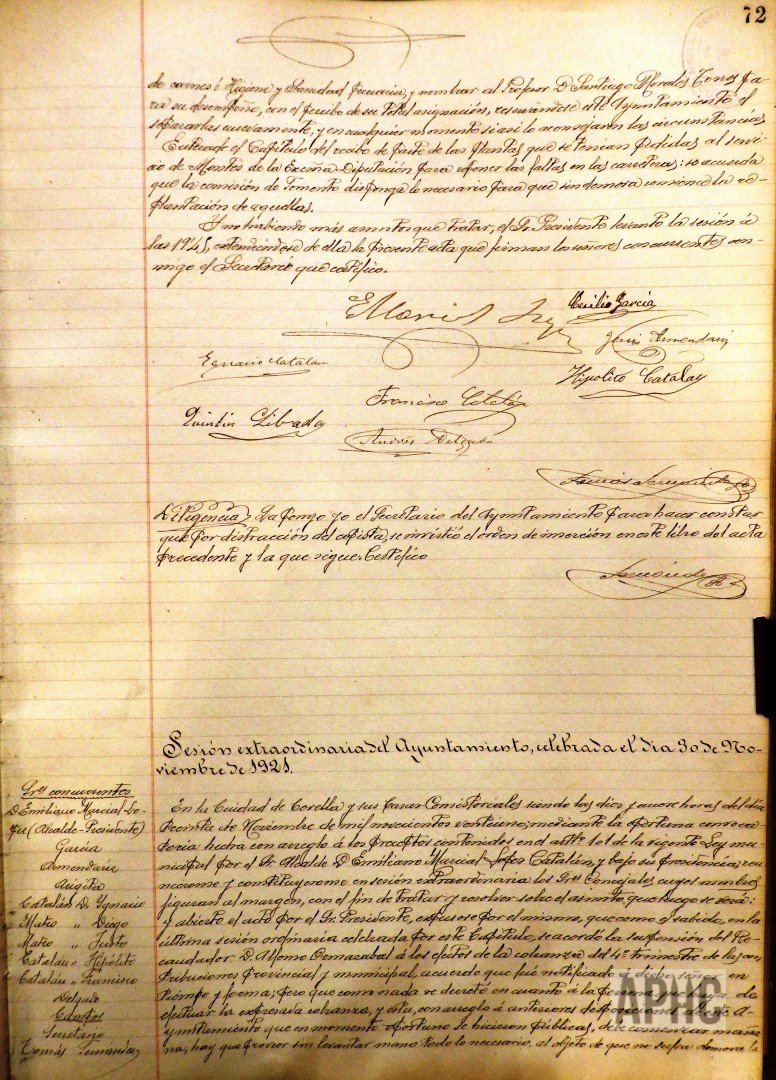 72
de carnes é Higiene y Sanidad pecuaria, y nombrar al Profesor D. Santiago Morales Torres pa-
ra su desempeño, con el percibo de su total asignación, reservándose este Ayuntamiento el
separarlas nuevamente, y en cualquier momento si así lo aconsejaren las circunstancias.
Enterado el Capítulo del recibo de parte de las plantas que se tenían pedidas al servi-
cio de Montes de la Excma Diputación para reponer las faltas en las carreteras: se acuerda
que la comisión de Fomento disponga lo necesario para que sin demora comience la re-
plantación de aquellas.
Y no habiendo más asuntos que tratar, el Sr. Presidente levantó la sesión á
las 19'45, extendiéndose de ella la presente acta que firman los señores concurrentes con-
migo el Secretario que certifico.
Cecilio García
Ygnacio Catalan
Hipolito Catalan
Francisco Catalán
Quintin Librada
Andrés Delgado
Diligencia, La pongo yo el Secretario del Ayuntamiento para hacer constar
que por distracción del copista, se invirtió el orden de inserción en este libro del acta
precedente y la que sigue. Certifico
Sesión extraordinaria del Ayuntamiento, celebrada el dia 30 de No-
viembre de 1921.
Sres. concurrentes
D. Emiliano Marcial Lo-
pez (Alcalde-Presidente)
Garcia
Armendariz
Argita
Catalán D. Ygnacio
Mateo " Diego
Mateo " Justo
Catalán " Hipólito
Catalan " Francisco
Delgado
Campos
Secretario
Tomás
En la Ciudad de Corella y sus Casas Consistoriales siendo las diez y nueve horas del dia
treinta de Noviembre de mil novecientos veintiuno; mediante la oportuna convoca-
toria hecha con arreglo á los preceptos contenidos en el arttº 101 de la vigente Ley mu-
nicipal por el Sr. Alcalde D. Emiliano Marcial Lopez Catalán, y bajo su presidencia; reu-
niéronse y constituyeronse en sesión extraordinaria los Sres. Concejales cuyos nombres
figuran al margen, con el fin de tratar y resolver sobre el asunto, que luego se verá:
y abierto el acto por el Sr. Presidente, expúsose por el mismo, que como es sabido, en la
última sesión ordinaria celebrada por este Capítulo, se acordó la suspensión del Re-
caudador D. Alfonso á los efectos de la cobranza del 4º trimestre de las con-
tribuciones Provincial y municipal, acuerdo que fué notificado á dicho señor en
tiempo y forma; pero que como nada se decretó en cuanto á la persona que haya de
efectuar la expresada cobranza, y ésta, con arreglo á anteriores disposiciones de este A-
yuntamiento que en momento oportuno se hicieron públicas, debe comenzar maña-
na, hay que proveer sin levantar mano todo lo necesario, al objeto de que no sufra demora la
ARHC